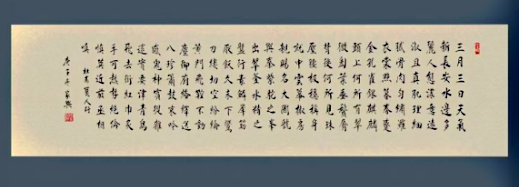 三月三日天氣
新長安水邊多
麗人態濃意遠
淑且真肌理細
膩骨肉勻繡羅
衣裳照暮春蹙
金孔雀銀麒麟
頭上何所有翠
微㔩葉垂鬢唇
背後何所見珠
壓腰衱穩稱身
就中雲幕椒房
親賜名大國虢
與秦紫駝之峰
出翠釜水精之
盤行素鱗犀箸
厭飫久未下鸞
刀縷切空紛綸
黃門飛鞚不動
塵御廚絡繹送
八珍簫鼓哀吟
感鬼神賓從雜
遝實要津青鳥
飛去銜紅巾炙
手可熱勢絕倫
慎莫近前丞相
嗔 杜甫麗人行